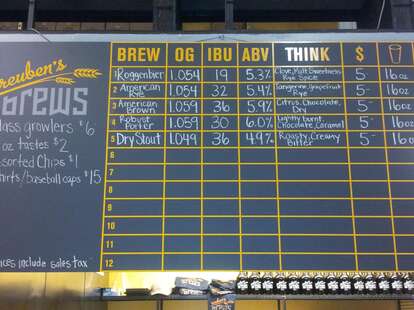 reuben's
BREWS
lass growlers $6
oz tastes $2
sorted Chips $1
hirts/baseball caps $15
ices include sales tax
BREW OG IBU ABV THINK $
1 Roggenbier 1.054 19 5.3% Clove, Malt Sweetness, Rye Spice 5- 16oz
2 American Rye 1.054 32 5.4% Tangerine, Grapefruit Rye 5- 16oz
3 American Brown 1.059 36 5.9% Citrus, Chocolate, Dry 5- 16oz
4 Robust Porter 1.059 30 6.0% Lightly burnt Chocolate, Caramel 5- 16oz
5 Dry Stout 1.049 36 4.9% Roasty, Creamy Bitter 5- 16oz
6
7
8
9
10
11
12